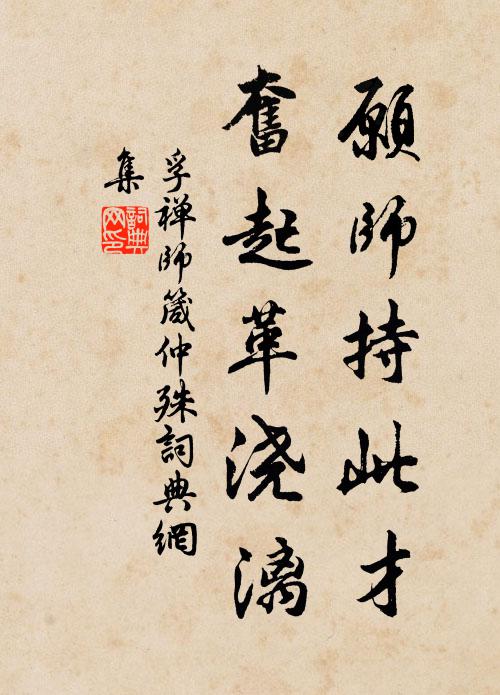 願師持此才
奮起革浇漓
孚禅師箴仲殊詞典網
集
詞典网印